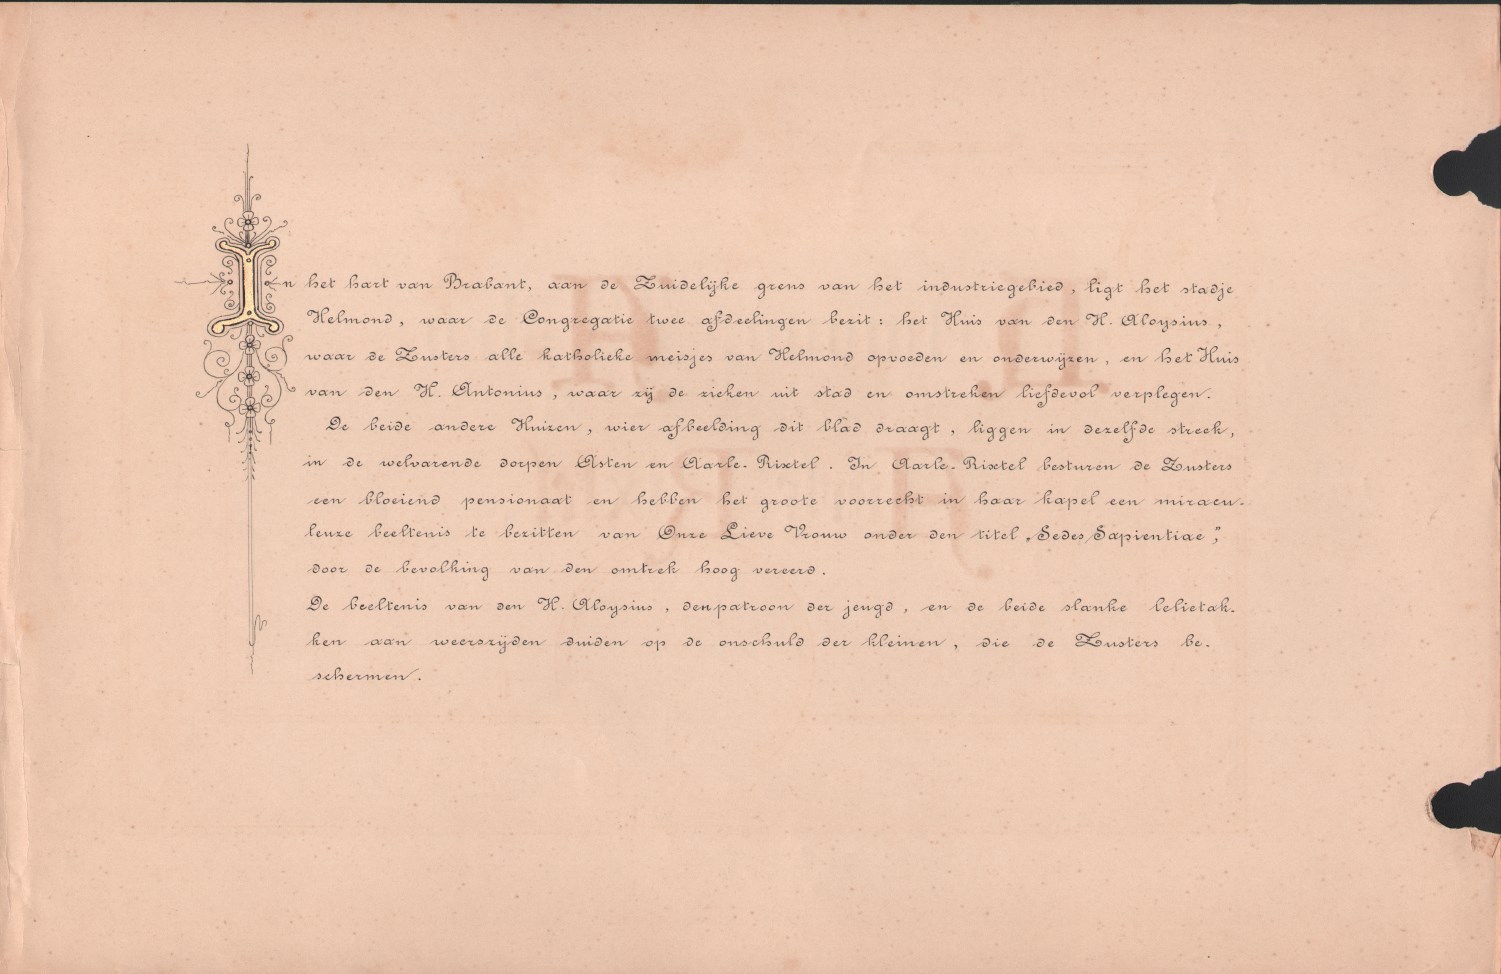 In het hart van Brabant, aan de Zuidelijke grens van het industriegebied, ligt het stadje
Helmond, waar de Congregatie twee afdeelingen bezit: het Huis van den H. Aloysius,
waar de Zusters alle katholieke meisjes van Helmond opvoeden en onderwijzen, en het Huis
van den H. Antonius, waar zij de zieken uit stad en omstreken liefdevol verplegen.
De beide andere Huizen, wier afbeelding dit blad draagt, liggen in dezelfde streek,
in de welvarende dorpen Asten en Aarle-Rixtel. In Aarle-Rixtel besturen de Zusters
een bloeiend pensionaat en hebben het groote voorrecht in haar kapel een miracu-
leuze beeltenis te bezitten van Onze Lieve Vrouw onder den titel „Sedes Sapientiae",
door de bevolking van den omtrek hoog vereerd.
De beeltenis van den H. Aloysius, den patroon der jeugd, en de beide slanke lelietak-
ken aan weerszijden duiden op de onschuld der kleinen, die de Zusters be-
schermen.